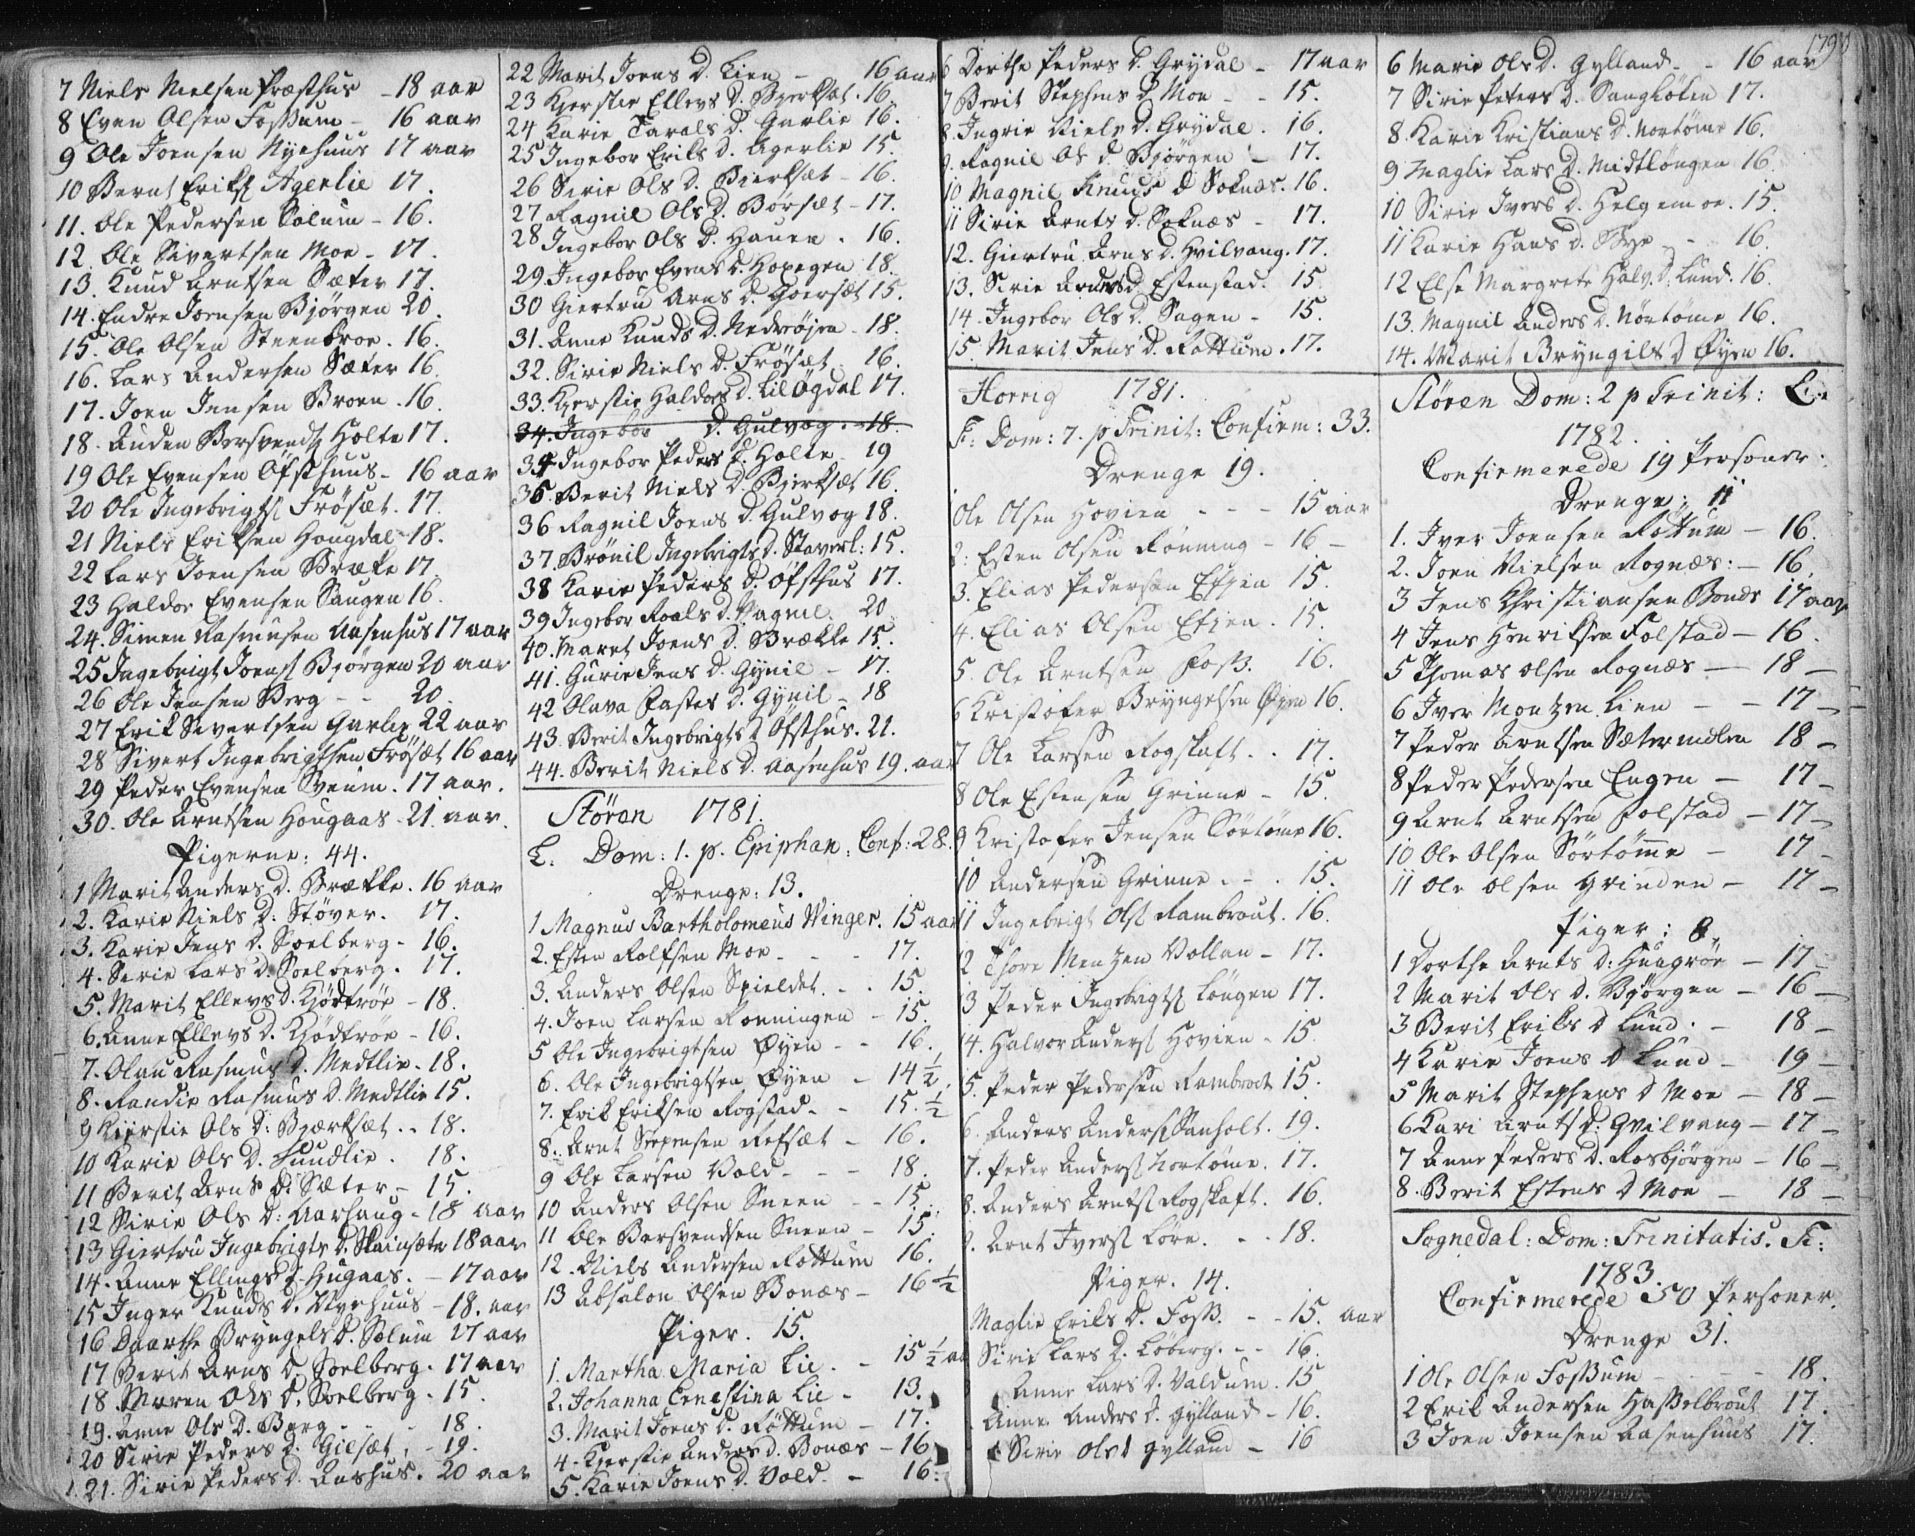 7 Niels Nielsen Præsthus - 18 aar
8 Even Olsen Fossum - 16 aar
9 Ole Joensen Nyehuus 17 aar
10 Bernt Eriks Agerlie 17.
11. Ole Pedersen Solum - 16.
12. Ole Sivertsen Moe - 17.
13. Knud Arntsen Sæter 17.
14. Endre Joensen Bjørgen 20.
15. Ole Olsen Steenbroe. 16.
16. Lars Andersen Sæter 16.
17. Joen Jensen Broen. 16.
18. Auden Bersvends Holte 17.
19 Ole Evensen Øfsthuus - 16 aar
20 Ole Ingebrigts Frøsæt. 17.
21 Niels Eriksen Hougdal 18.
22 Lars Joensen Bræke 17
23 Haldor Evensen Haugen 16.
24. Simen Rasmusen Aasenhus 17 aar
25 Ingebrigt Joens Bjørgen 20 aar
26 Ole Jensen Berg - - 20.
27 Erik Sivertsen Garlie 22 aar
28 Sivert Ingebrigtsen Frøsæt 16 aar
29 Peder Evensen Sveum. 17 aar.
30. Ole Arntsen Hougaas - 21 aar.
Pigerne: 44.
1 Marit Anders d. Brække. 16 aar
2. Karie Niels d: Støver. 17.
3. Karie Jens d. Soelberg - 16.
4. Serie Lars d. Soelberg. 17.
5. Marit Ellevs d. Kjødtrøe - 18.
6. Anne Ellevs d. Kjødtrøe - 16.
7. Olau Rasmus d. Medtlie. 18.
8. Randie Rasmus d. Medtlie 15.
9 Kierstie Ols d: Bjærksæt.. 18.
10 Karie Ols d. Hundlie. 18.
11 Berit Arns d: Sæter - 15.
12 Sirie Ols d: Aarhaug - 18 aar
13 Giertru Ingebrigts d. Skainsæte 18 aar
14. Anne Ellings d. Hugaas. - 17 aar
15 Inger Knuds d. Nyehuus - 18. aar
16 Daarthe Bryngels d. Solum 17 aar
17 Berit Arns d. Soelberg. 17 aar
18. Maren Ols d. Soelberg. 15
19. Anne Ols d. Berg - - - 18.
20 Sirie Peders d. Gilsæt, - 19.
21. Sirie Peders d. Aashus. 20 aar
22 Marit Joens d. Lien - 16 aar
23 Kjerstie Ellevs d. Bjerksæt. 16.
24 Karie Tarals d. Garlie 16.
25 Ingebor Eriks d. Agerlie 15.
26 Serie Ols d. Bierksæt - 16.
27 Ragnil Ols d. Børsæt - 17.
28 Ingebor Ols d. Hauen. 16.
29. Ingebor Evens d. Hopegen 18.
30 Giertru Arns d. Goersæt 15.
31. Anne Knuds d. Nedrøjen - 18.
32. Sirie Niels d. Frøsæt 16.
33. Kjerstie Haldors d. Lil Øgdal 17.
34. Ingebor d. Gulvog. - 18.
34 Ingebor Peders d. Holte. 19
35. Berit Niels d. Bjerksæt 16.
36 Ragnil Joens d. Gulvog 18.
37. Brønil Ingebrigts d. Staverl: 15.
38 Karie Peders d. Øfsthus 17.
39 Ingebor Roals d. Vagnil. 20.
40. Maret Joens d. Brække 15.
41. Gurie Jens d. Gynil - 17.
42 Olava Fastes d. Gynil - 18
43. Berit Ingebrigts d. Øfsthus. 21.
44. Berit Niels d. Aasenhus 19. aar
Støren 1781.
L. Dom: 1. p. Epiphan: Conf: 28.
Drenge: 13.
1 Magnus Bartholomeus Winger. 15 aar
2. Esten Rolfsen Moe - - - 17.
3. Anders Olsen Spieldet. - . 15.
4. Joen Larsen Ronningen - 15.
5 Ole Ingebrigtsen Øyen - - 16.
6. Ole Ingebrigtsen Øyen - 14 1/2.
7. Erik Eriksen Rogstad. - 15. 1/2
8. Arnt Stephensen Refsæt - 16.
9 Ole Larsen Vold - - - 18.
10 Anders Olsen Sneen - 15.
11 Ole Bersvendsen Sneen - 15.
12. Niels Andersen Røttum 16.
13 Absalon Olsen Bonæs - 16 1/2
Piger. 15.
1. Martha Maria Lie. - 15 1/2 aar
2. Johanna Ernestina Lie - 13.
3. Marit Joens d. Røttum - 17.
4. Kjerstie Anders d. Bonæs - 16
5. Karie Joens d. Vold. - 16.
6 Dorthe Peders d. Grydal - 17 aar
7 Berit Stephens d. Moe - - 15.
8. Ingrie Niels d. Grydal. 16.
9. Ragnil Ols d. Bjørgen - 17.
10. Magnil Knuds d Soknæs. 16.
11 Sirie Arnts d. Soknæs - 17.
12. Giertru Arns d. Hvilvang. 17.
13. Sirie Arnts d. Estenstad. 15.
14. Ingebor Ols d. Sagen - 15.
15. Marit Jens d. Rottum. 17.
Horrig 1781.
F: Dom: 7. p Trinit: Confirm: 33.
Drenge 19.
Ole Olsen Hovien - - - 15 aar
2. Esten Olsen Rønning - 16 -
3. Elias Pedersen Etjen 15.
4. Elias Olsen Etjen. 15.
5. Ole Arntsen Foss. 16.
6 Kristofer Bryngelsen Øyen 16.
7 Ole Larsen Rogstaft. . 17.
8 Ole Estensen Grinne - 15.
9 Kristofer Jensen Sørtøme 16.
10 Andersen Grinne. - . 15.
11 Ingebrigt Ols Rambrout. 16.
12 Thore Mentzen Vollan - 17.
13 Peder Ingebrigts Løngen 17.
14. Halvor Anders Hovien - 15.
15. Peder Pedersen Rambrout 15.
6. Anders Anders Sanholt. 19.
7. Peder Anders Nortøme. 17.
8. Anders Arnts Rogstaft. 16.
9. Arnt Ivers Løre. - . 18.
Piger. 14.
Maglie Eriks d. Foss. - - 15. aar
Sirie Lars d. Løberg. - - 16.
Anne Lars d. Valdum. 15
Anne Anders d. Gylland - 16.
Sirie Ols d Gylland - 16
179
6 Marie Ols d. Gylland - - 16 aar
7 Sirie Peters d. Sanghøten 17.
8. Karie Kristians d. Nortøme 16.
9 Maglie Lars d. Midtløngen 16.
10 Sirie Ivers d. Helgemoe. 15.
11 Karie Hans d. Bye - - 16.
12 Else Margrete Halv. d. Lund. 16.
13. Magnil Anders d. Nortøme 16.
14. Marit Bryngils d Øyen 16.
Støren Dom: 2 p Trinit: L.
1782.
Confirmerede 19 Personer.
Drenge: 11
1. Iver Joensen Røttum - 16.
2. Joen Nielsen Rognæs: - 16.
3 Jens Christiansen Bonæs 17 aar
4 Jens Henriksen Folstad - 16.
5 Thomas olsen Rognæs - 18 -
6 Iver Montzen Lien - - 17 -
7 Peder Arntsen Sætermolen 18 -
8 Peder Pedersen Engen - 17 -
9 Arnt Arntsen Folstad - 17 -
10 Ole Olsen Sørtømme - 17 -
11 Ole olsen Grinden - 17 -
Piger: 8.
1 Dorthe Arnts d: Huugrøe - 17 -
2 Marit Ols d. Bjørgen - 16 -
3 Berit Eriks d Lund. - 18 -
4 Karie Joens d Lund - 19 -
5 Marit Stephens d Moe - 18 -
6 Kari Arnts d: Hvilvang - 17 -
7 Anne Peders d. Rosbjørgen - 16 -
8. Berit Estens d Moe - 18 -
Sognedal: Dom: Trinitatis. F:
1783.
Confirmerede 50 Personer.
Drenge 31.
1 Ole Olsen Fossum - - - - 18.
2 Erik Andersen Hasselbrout 17.
3 Joen Joensen Aasenhuus 17.